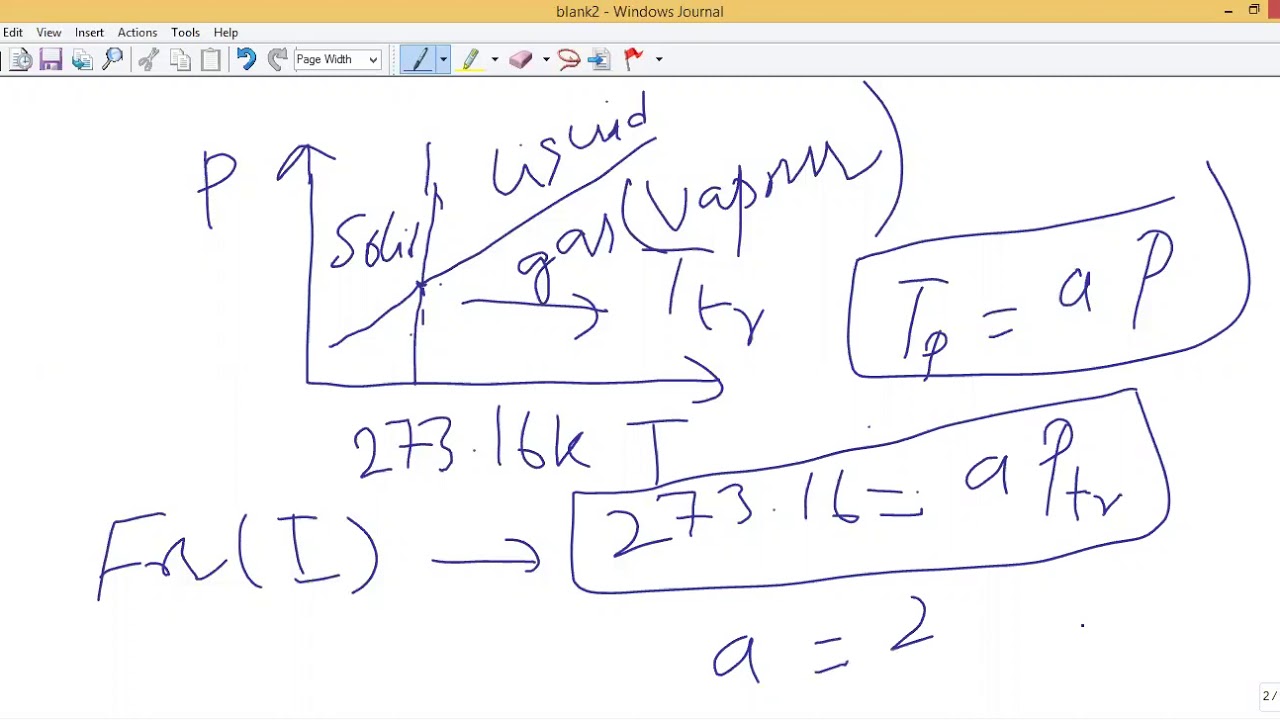 blank2 - Windows Journal
Edit View Insert Actions Tools Help
Page Width
P
Solid
Liquid
gas (Vapour)
Ttr
Tp = a P
273.16k T
273.16 = a Ptr
(I)
a = 2
2 /